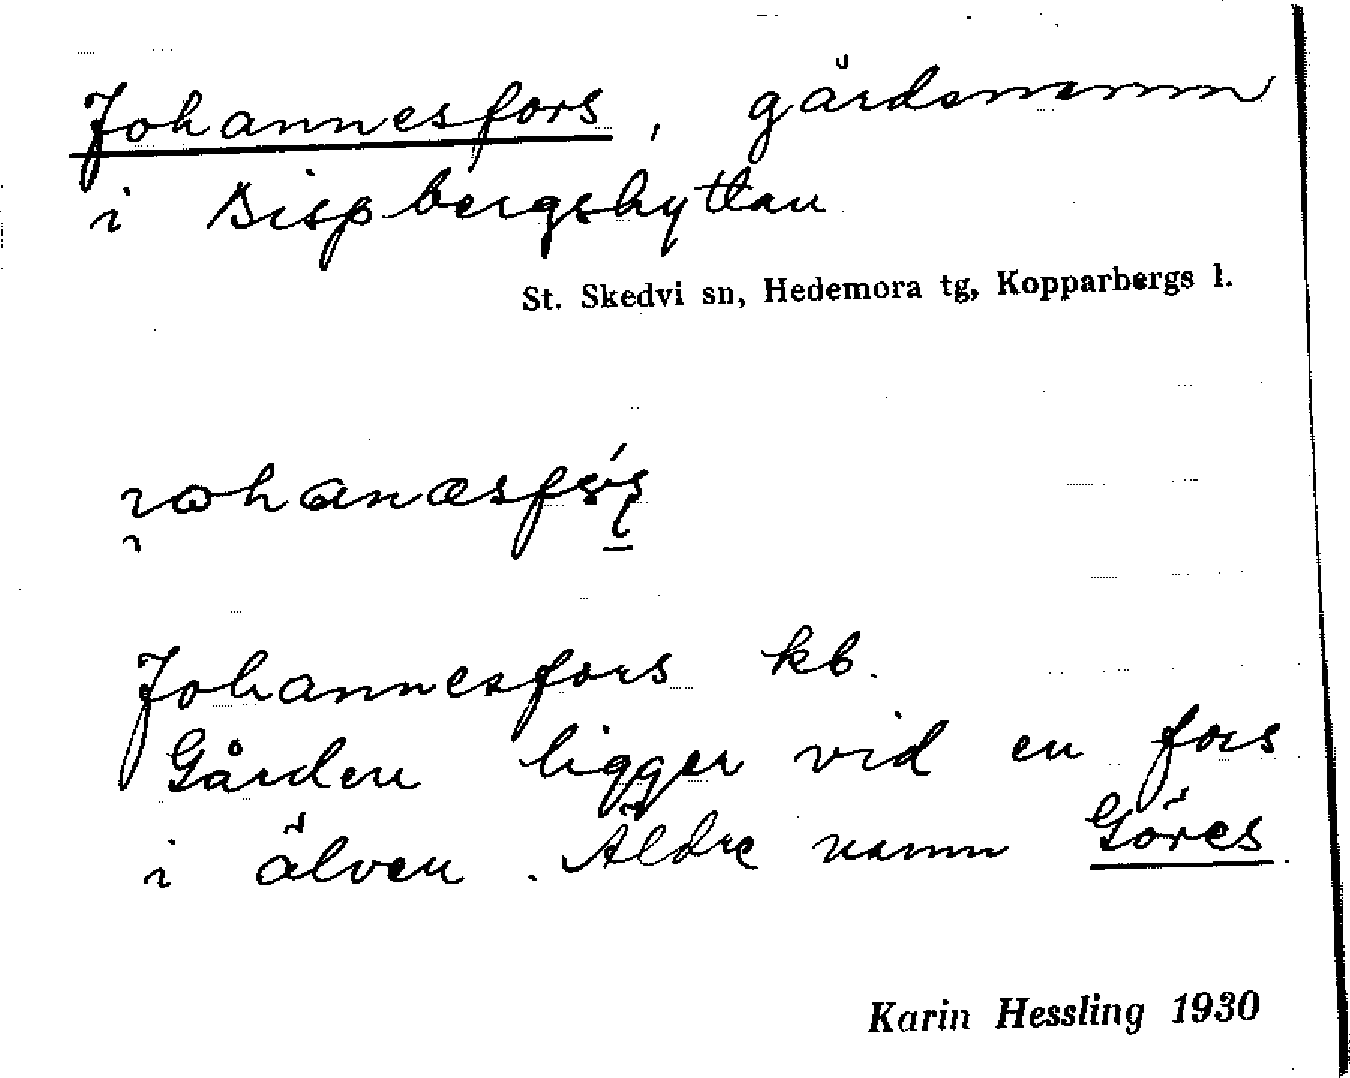 Johannesfors, gårdsnamn
i Bispbergshyttan
St. Skedvi sn, Hedemora tg, Kopparbergs l.
Johannesfors kb.
Gården ligger vid en fors
i älven. Äldre namn Göres.
Karin Hessling 1930